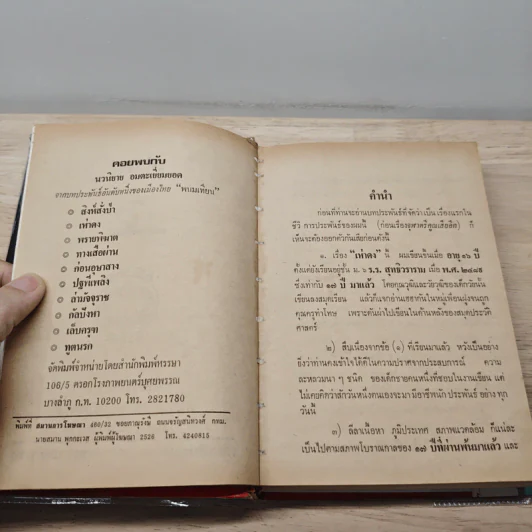 คอยพบกับ
นวนิยาย อมตะเยี่ยมยอด
จากบทประพันธ์อันดับหนึ่งของเมืองไทย "พนมเทียน"
สิงห์สั่งป่า
เห่าดง
พรายพิฆาต
ทางเสือผ่าน
ก่อนอุษาสาง
ปฐพีเพลิง
ล่ามัจจุราช
กัลปังหา
เล็บครุฑ
ทูตนรก
จัดพิมพ์จำหน่ายโดยสำนักพิมพ์ทรรษา
106/5 ตรอกโรงภาพยนตร์บุศยพรรณ
บางลำภู ก.ท. 10200 โทร. 2821790
พิมพ์ที่ สมานการโฆษณา 480/32 ซอยศาณุรังษี ถนนจรัญสนิทวงศ์ กทม.
นายสมาน พุกกะเวส ผู้พิมพ์ผู้โฆษณา 2526 โทร. 4240815
คำนำ
ก่อนที่ท่านจะอ่านบทประพันธ์ที่จัดว่าเป็นเรื่องแรกใน
ชีวิตการประพันธ์ของผมนี้ (ก่อนเรื่องจุฬาตรีคูณเสียอีก) ก็
เห็นจะต้องออกตัวกันเสียก่อนดังนี้
๑. เรื่อง "เห่าดง" นี้ ผมเขียนขึ้นเมื่อ อายุ ๑๖ ปี
ตั้งแต่ยังเรียนอยู่ชั้น ม. ๖ ร.ร. สุทธิวราราม เมื่อ พ.ศ. ๒๔๘๙
ซึ่งเท่ากับ ๓๗ ปี มาแล้ว โดยคุณวุฒิและวัยวุฒิของเด็กวัยนั้น
เขียนลงสมุดเรียน แล้วก็แจกอ่านเฮฮากันในหมู่เพื่อนฝูงจนถูก
คุณครูทำโทษ เพราะดันผ่าไปเขียนในด้านหลังของสมุดประวัติ
ศาสตร์
๒) สืบเนื่องจากข้อ (๑) ที่เรียนมาแล้ว หวังเป็นอย่าง
ยิ่งว่าท่านคงเข้าใจได้ดีในความปราศจากประสบการณ์ ความ
ละหลวมนา ๆ ชนิด ของเด็กชายคนหนึ่งที่ชอบในงานเขียน แต่
ไม่เคยคิดว่าสักวันหนึ่งตนเองจะมามีอาชีพนักประพันธ์ อย่างทุก
วันนี้
๓) ลีลาเนื้อหา ภูมิประเทศ สภาพแวดล้อม ก็แน่ละ
เป็นไปตามสภาพโบราณกาลของ ๓๗ ปีที่ผ่านพ้นมาแล้ว และ